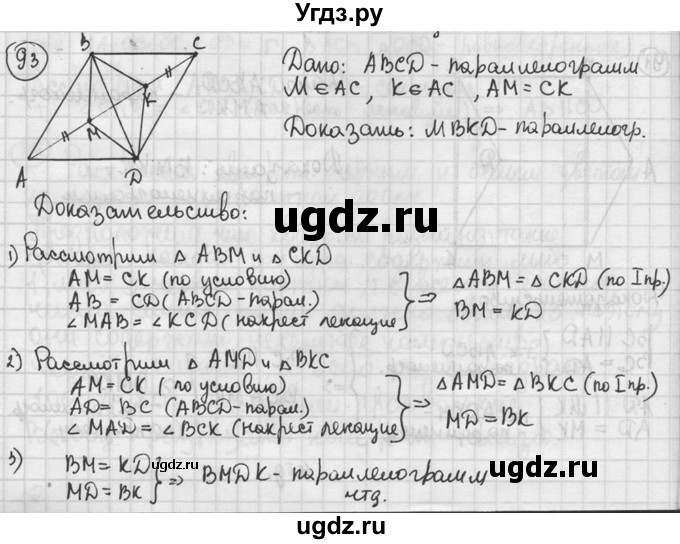 Угдз.ру
93
B C
K
M
A D
Дано: ABCD - параллелограмм
M ∈ AC, K ∈ AC, AM = CK
Доказать: MBKD - параллелогр.
Доказательство:
ugdz.ru
1) Рассмотрим △ ABM и △ CKD
AM = CK (по условию)
AB = CD (ABCD - парал.)
∠MAB = ∠KCD (накрест лежащие) } ⇒ △ABM = △CKD (по I пр.)
BM = KD
ugdz.ru
2) Рассмотрим △ AMD и △BKC
AM = CK (по условию)
AD = BC (ABCD - парал.)
∠MAD = ∠BCK (накрест лежащие } ⇒ △AMD = △BKC (по I пр.)
MD = BK
ugdz.ru
3) BM = KD
MD = BK } ⇒ BMDK - параллелограмм
чтд.
ugdz.ru
ugdz.ru